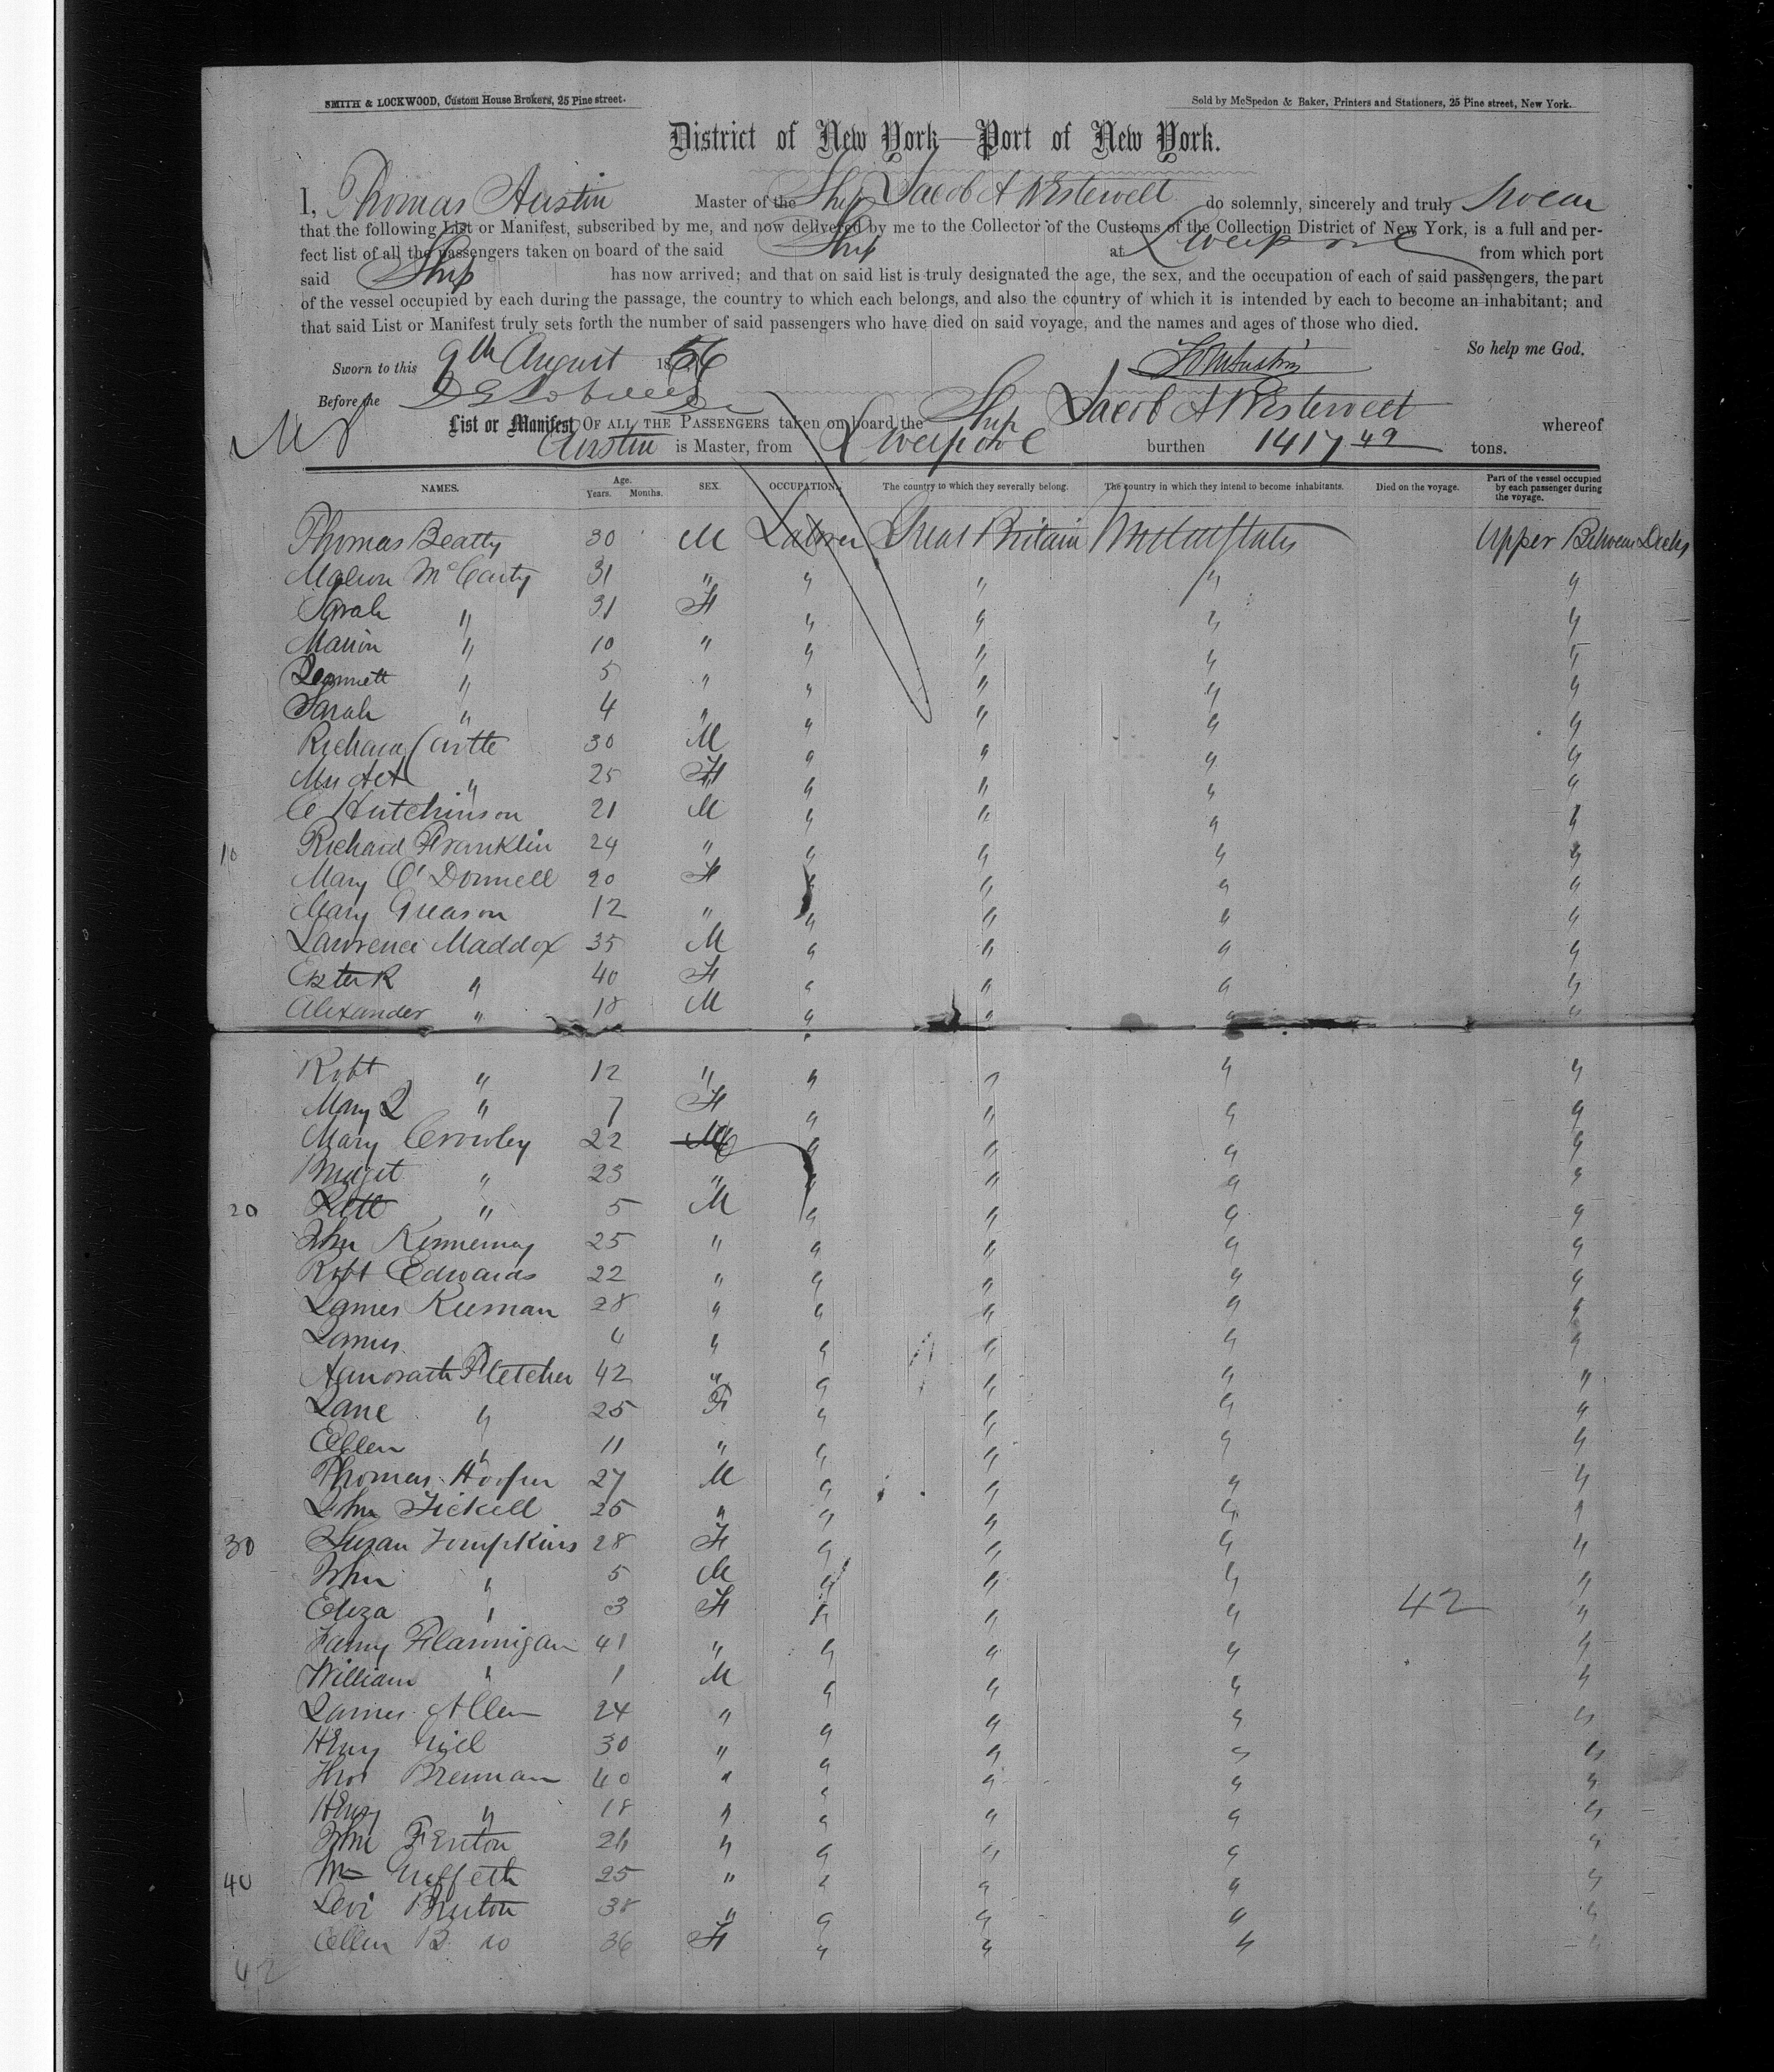 SMITH & LOCKWOOD, Custom House Brokers, 25 Pine street.
Sold by McSpedon & Baker, Printers and Stationers, 25 Pine street, New York.
District of New York—Port of New York.
I, Thomas Austin Master of the Ship Jacob A Westervelt do solemnly, sincerely and truly swear
that the following List or Manifest, subscribed by me, and now delivered by me to the Collector of the Customs of the Collection District of New York, is a full and per-
fect list of all the passengers taken on board of the said Ship at Liverpool from which port
said Ship has now arrived; and that on said list is truly designated the age, the sex, and the occupation of each of said passengers, the part
of the vessel occupied by each during the passage, the country to which each belongs, and also the country of which it is intended by each to become an inhabitant; and
that said List or Manifest truly sets forth the number of said passengers who have died on said voyage, and the names and ages of those who died.
So help me God.
Sworn to this 9th August 1856
Before me
List or Manifest OF ALL THE PASSENGERS taken on board the Ship Jacob A Westervelt whereof
Austin is Master, from Liverpool burthen 1417 49 tons.
NAMES. Age. Years. Months. SEX. OCCUPATION. The country to which they severally belong. The country in which they intend to become inhabitants. Died on the voyage. Part of the vessel occupied by each passenger during the voyage.
Thomas Beatty 30 M Laborer Great Britain United States Upper Between Decks
McCarty 31 " " " " "
Sarah " 31 F " " " "
Marion " 10 " " " " "
" 5 " " " " "
Sarah " 4 " " " " "
Richard 30 M " " " "
" 25 F " " " "
C Hutchinson 21 M " " " "
10 Richard Franklin 24 " " " " "
Mary O'Donnell 20 F " " " "
Mary Greason 12 " " " " "
Lawrence Maddox 35 M " " " "
" 40 F " " " "
Alexander " 18 M " " " "
Robt " 12 " " " " "
Mary J " 7 F " " " "
Mary Crowley 22 " " " "
Bridget " 23 " " " " "
20 " 5 M " " " "
John 25 " " " " "
Robt Edwards 22 " " " " "
James 28 " " " " "
James 4 " " " " "
Fletcher 42 " " " " "
Jane " 25 F " " " "
Ellen " 11 " " " " "
Thomas Hooper 27 M " " " "
John Tickell 25 " " " " "
30 Susan Tompkins 28 F " " " "
John " 5 M " " " "
Eliza " 3 F " " " 42 "
Fanny Flannigan 41 " " " " "
William " 1 M " " " "
James Allen 24 " " " " "
Henry 30 " " " " "
Thos Brennan 40 " " " " "
Henry " 18 " " " " "
John Fenton 26 " " " " "
40 Wm Griffeth 25 " " " " "
Levi Bruton 38 " " " " "
Ellen B do 36 F " " " "
42